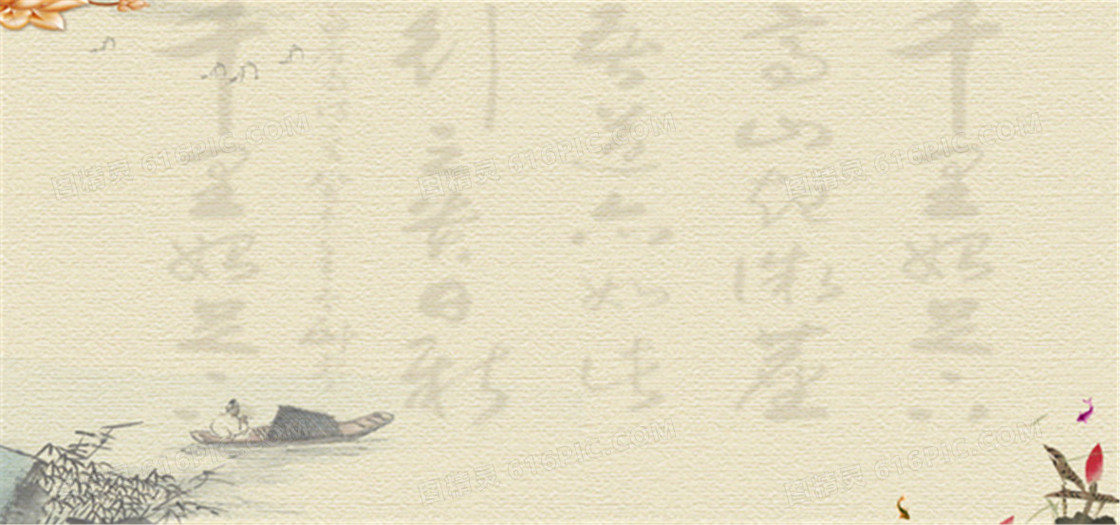 千里始足下
高山起微塵
吾道亦如此
行之貴日新
千里始足下
图精灵 616PIC.COM
图精灵 616PIC.COM
图精灵 616PIC.COM
616PIC.COM
图精灵 616PIC.COM
图精灵 616PIC.COM